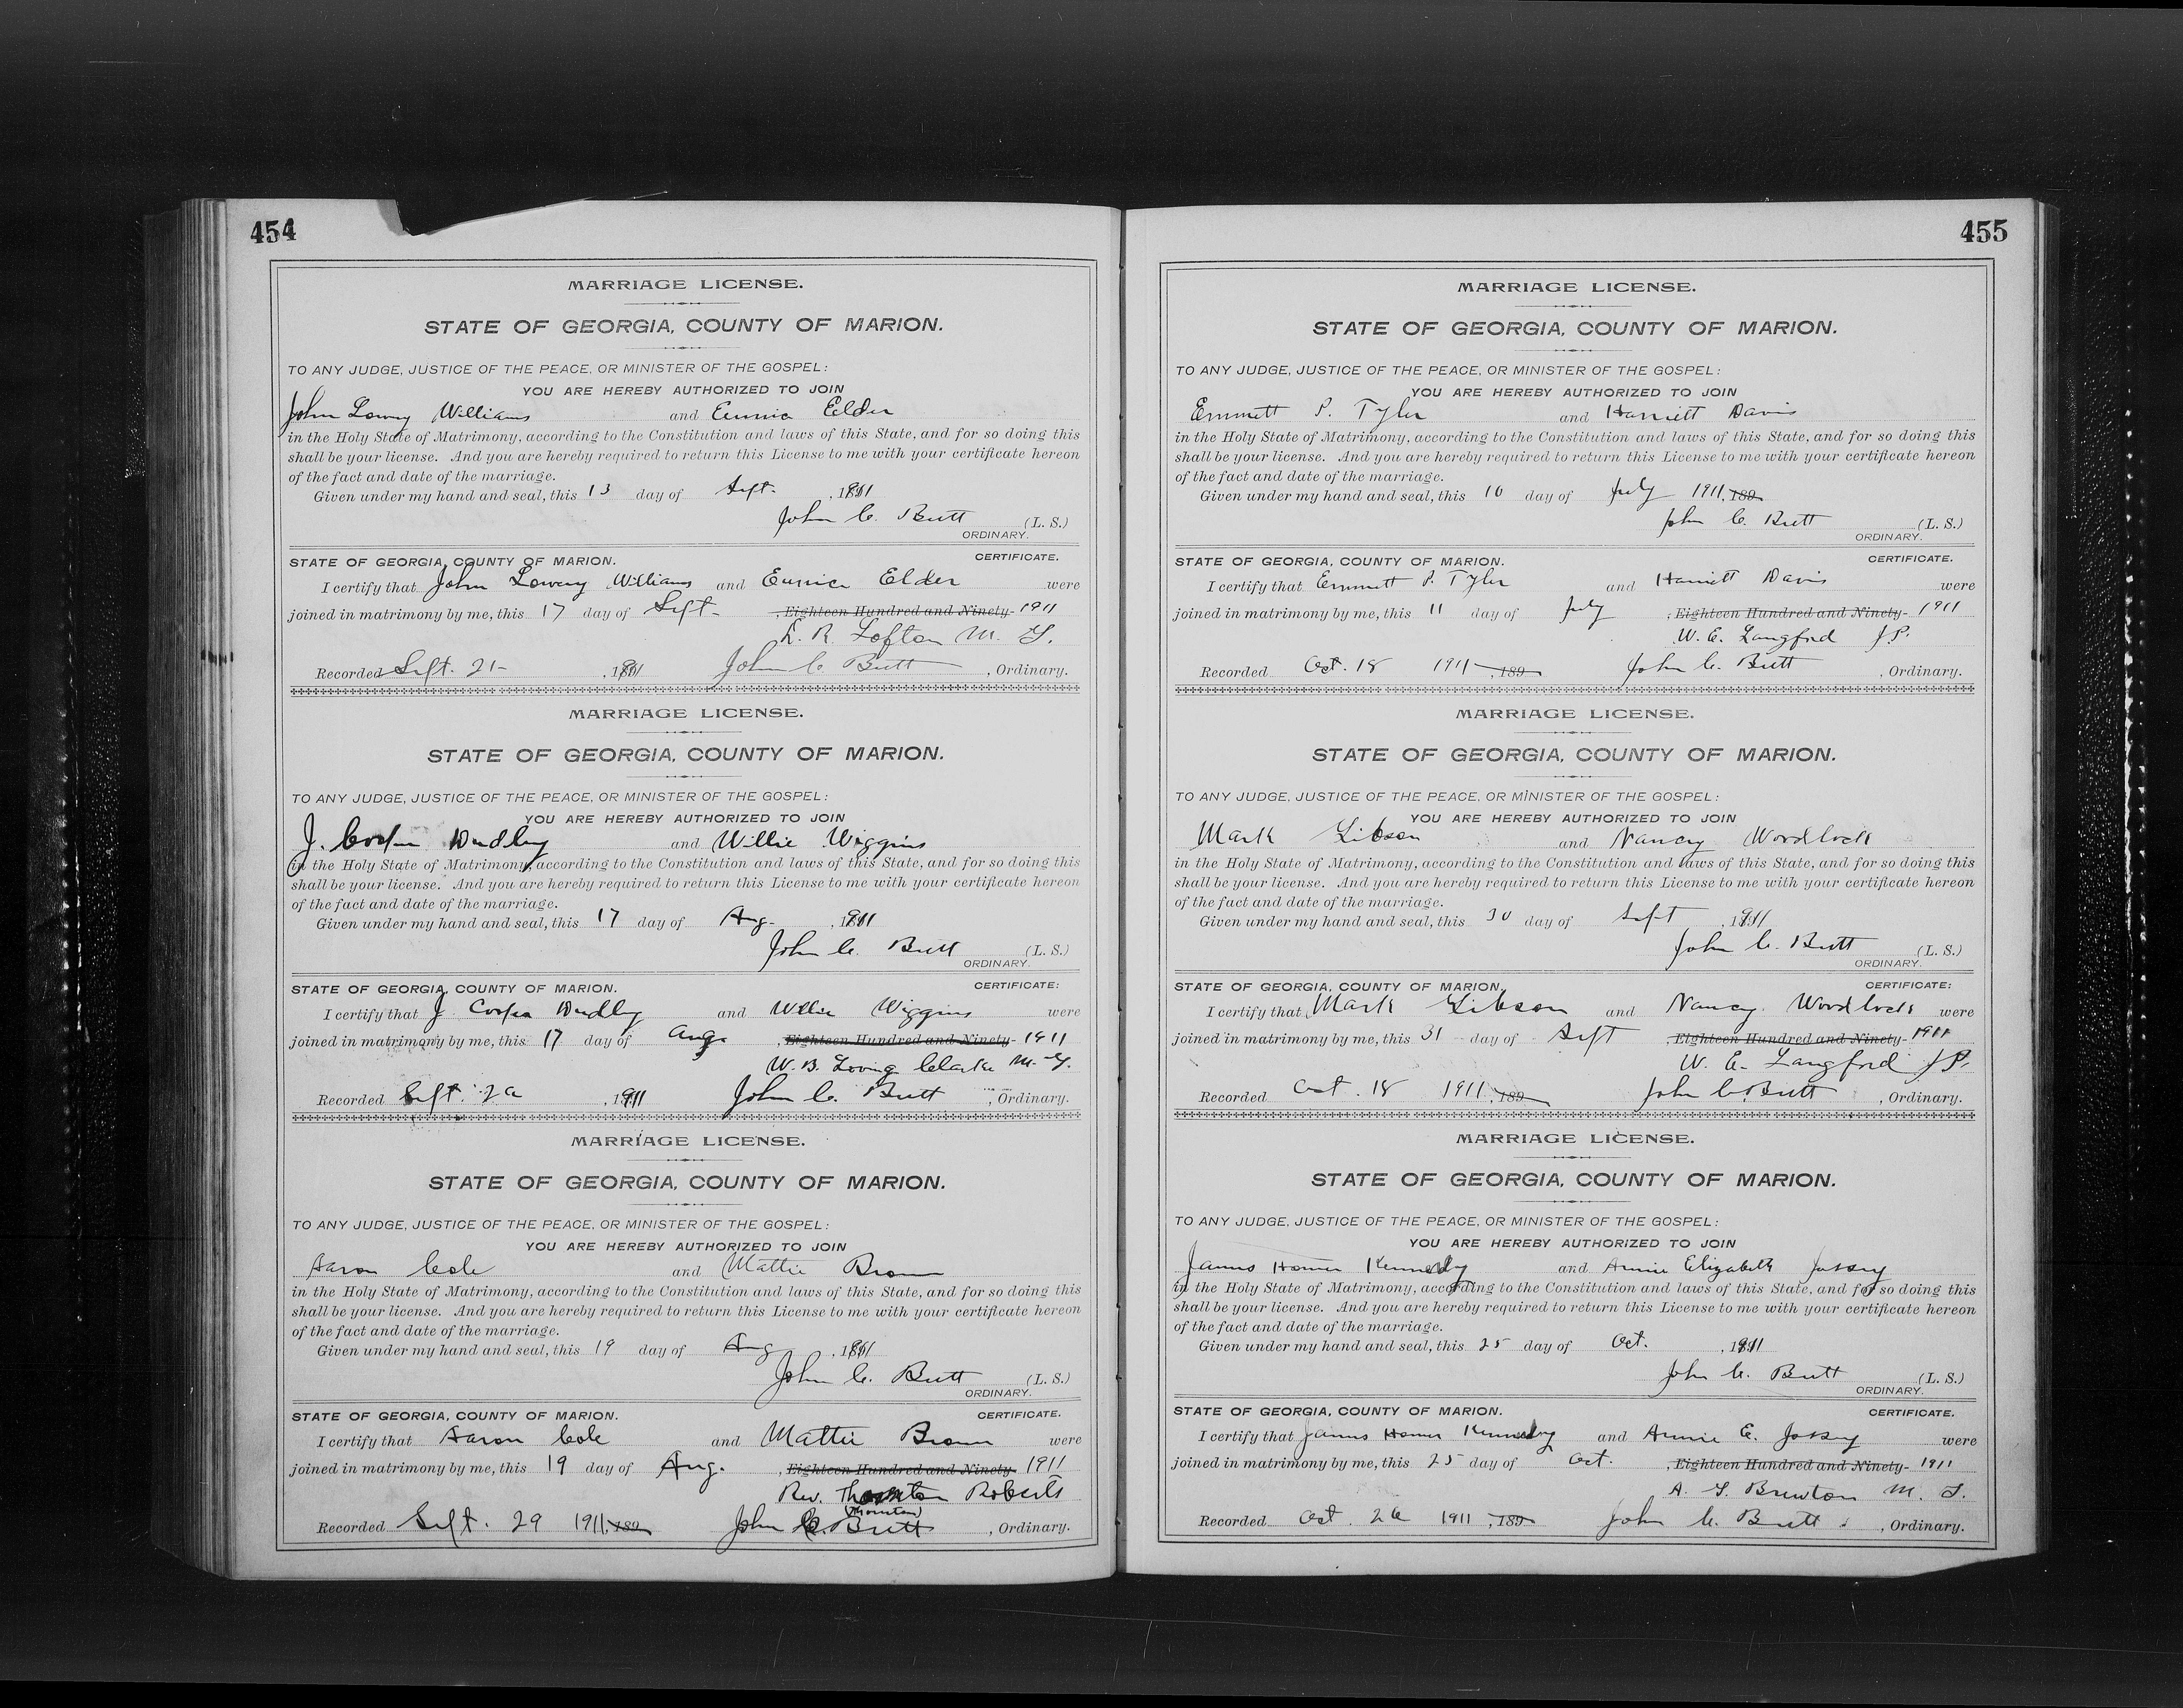 454
MARRIAGE LICENSE.
STATE OF GEORGIA, COUNTY OF MARION.
TO ANY JUDGE, JUSTICE OF THE PEACE, OR MINISTER OF THE GOSPEL:
YOU ARE HEREBY AUTHORIZED TO JOIN
John Lowery Williams and Eunice Elder
in the Holy State of Matrimony, according to the Constitution and laws of this State, and for so doing this
shall be your license. And you are hereby required to return this License to me with your certificate hereon
of the fact and date of the marriage.
Given under my hand and seal, this 13 day of Sept. , 1911
John C. Butt (L. S.)
ORDINARY.
STATE OF GEORGIA, COUNTY OF MARION. CERTIFICATE.
I certify that John Lowery Williams and Eunice Elder were
joined in matrimony by me, this 17 day of Sept. , Eighteen Hundred and Ninety- 1911
L. R. Lofton M. G.
Recorded Sept. 21- , 1911 John C. Butt , Ordinary.
MARRIAGE LICENSE.
STATE OF GEORGIA, COUNTY OF MARION.
TO ANY JUDGE, JUSTICE OF THE PEACE, OR MINISTER OF THE GOSPEL:
YOU ARE HEREBY AUTHORIZED TO JOIN
J. Cooper Dudley and Willie Wiggins
in the Holy State of Matrimony, according to the Constitution and laws of this State, and for so doing this
shall be your license. And you are hereby required to return this License to me with your certificate hereon
of the fact and date of the marriage.
Given under my hand and seal, this 17 day of Aug. , 1911
John C. Butt (L. S.)
ORDINARY.
STATE OF GEORGIA, COUNTY OF MARION. CERTIFICATE:
I certify that J Cooper Dudley and Willie Wiggins were
joined in matrimony by me, this 17 day of Aug. , Eighteen Hundred and Ninety- 1911
W. B. Loving Clarke M. G.
Recorded Sept. , 1911 John C. Butt , Ordinary.
MARRIAGE LICENSE.
STATE OF GEORGIA, COUNTY OF MARION.
TO ANY JUDGE, JUSTICE OF THE PEACE, OR MINISTER OF THE GOSPEL:
YOU ARE HEREBY AUTHORIZED TO JOIN
Aaron Cole and Mattie Brown
in the Holy State of Matrimony, according to the Constitution and laws of this State, and for so doing this
shall be your license. And you are hereby required to return this License to me with your certificate hereon
of the fact and date of the marriage.
Given under my hand and seal, this 19 day of Aug , 1911
John C. Butt (L. S.)
ORDINARY.
STATE OF GEORGIA, COUNTY OF MARION. CERTIFICATE.
I certify that Aaron Cole and Mattie Brown were
joined in matrimony by me, this 19 day of Aug. , Eighteen Hundred and Ninety- 1911
Rev. Thornton Roberts
(Thornton)
Recorded Sept. 29 1911, 189 John C. Butt , Ordinary.
455
MARRIAGE LICENSE.
STATE OF GEORGIA, COUNTY OF MARION.
TO ANY JUDGE, JUSTICE OF THE PEACE, OR MINISTER OF THE GOSPEL:
YOU ARE HEREBY AUTHORIZED TO JOIN
Emmett P. Tyler and Harriett Davis
in the Holy State of Matrimony, according to the Constitution and laws of this State, and for so doing this
shall be your license. And you are hereby required to return this License to me with your certificate hereon
of the fact and date of the marriage.
Given under my hand and seal, this 10 day of July 1911, 189
John C. Butt (L. S.)
ORDINARY.
STATE OF GEORGIA, COUNTY OF MARION. CERTIFICATE.
I certify that Emmett P. Tyler and Harriett Davis were
joined in matrimony by me, this 11 day of July , Eighteen Hundred and Ninety- 1911
W. E. Langford J.P.
Recorded Oct. 18 1911, 189 John C. Butt , Ordinary.
MARRIAGE LICENSE.
STATE OF GEORGIA, COUNTY OF MARION.
TO ANY JUDGE, JUSTICE OF THE PEACE, OR MINISTER OF THE GOSPEL:
YOU ARE HEREBY AUTHORIZED TO JOIN
Mark Gibson and Nancy Woodlock
in the Holy State of Matrimony, according to the Constitution and laws of this State, and for so doing this
shall be your license. And you are hereby required to return this License to me with your certificate hereon
of the fact and date of the marriage.
Given under my hand and seal, this 30 day of Sept , 1911
John C. Butt (L. S.)
ORDINARY.
STATE OF GEORGIA, COUNTY OF MARION. CERTIFICATE:
I certify that Mark Gibson and Nancy Woodlock were
joined in matrimony by me, this 31 day of Sept , Eighteen Hundred and Ninety- 1911
W. E. Langford J.P.
Recorded Oct. 18 1911, 189 John C. Butt , Ordinary.
MARRIAGE LICENSE.
STATE OF GEORGIA, COUNTY OF MARION.
TO ANY JUDGE, JUSTICE OF THE PEACE, OR MINISTER OF THE GOSPEL:
YOU ARE HEREBY AUTHORIZED TO JOIN
James Homer Kennedy and Annie Elizabeth Jossey
in the Holy State of Matrimony, according to the Constitution and laws of this State, and for so doing this
shall be your license. And you are hereby required to return this License to me with your certificate hereon
of the fact and date of the marriage.
Given under my hand and seal, this 25 day of Oct. , 1911
John C. Butt (L. S.)
ORDINARY.
STATE OF GEORGIA, COUNTY OF MARION. CERTIFICATE.
I certify that James Homer Kennedy and Annie E. Jossey were
joined in matrimony by me, this 25 day of Oct. , Eighteen Hundred and Ninety- 1911
A. G. Brewton M. G.
Recorded Oct. 26 1911, 189 John C. Butt , Ordinary.